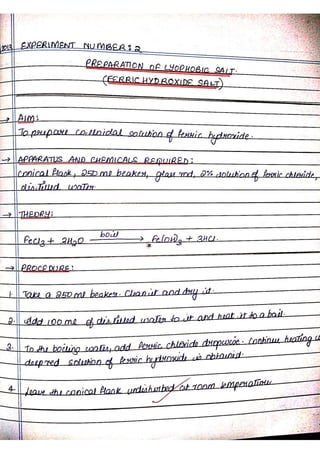 EXPERIMENT NUMBER: 2
PREPARATION OF LYOPHOBIC SALT.
(FERRIC HYDROXIDE SALT)
→ AIM:
To prepare colloidal solution of ferric hydroxide.
→ APPARATUS AND CHEMICALS REQUIRED:
Conical flask, 250 ml beaker, glass rod, 2% solution of ferric chloride,
distilled water
→ THEORY:
FeCl3 + 2H2O boil → Fe(OH)3 + 3HCl.
→ PROCEDURE:
1. Take a 250 ml beaker. Clean it and dry it.
2. Add 100 ml of distilled water to it and heat it to a boil.
3. To the boiling water, add ferric chloride dropwise. Continue heating u
deep red solution of ferric hydroxide is obtained.
4. Leave the conical flask undisturbed at room temperature